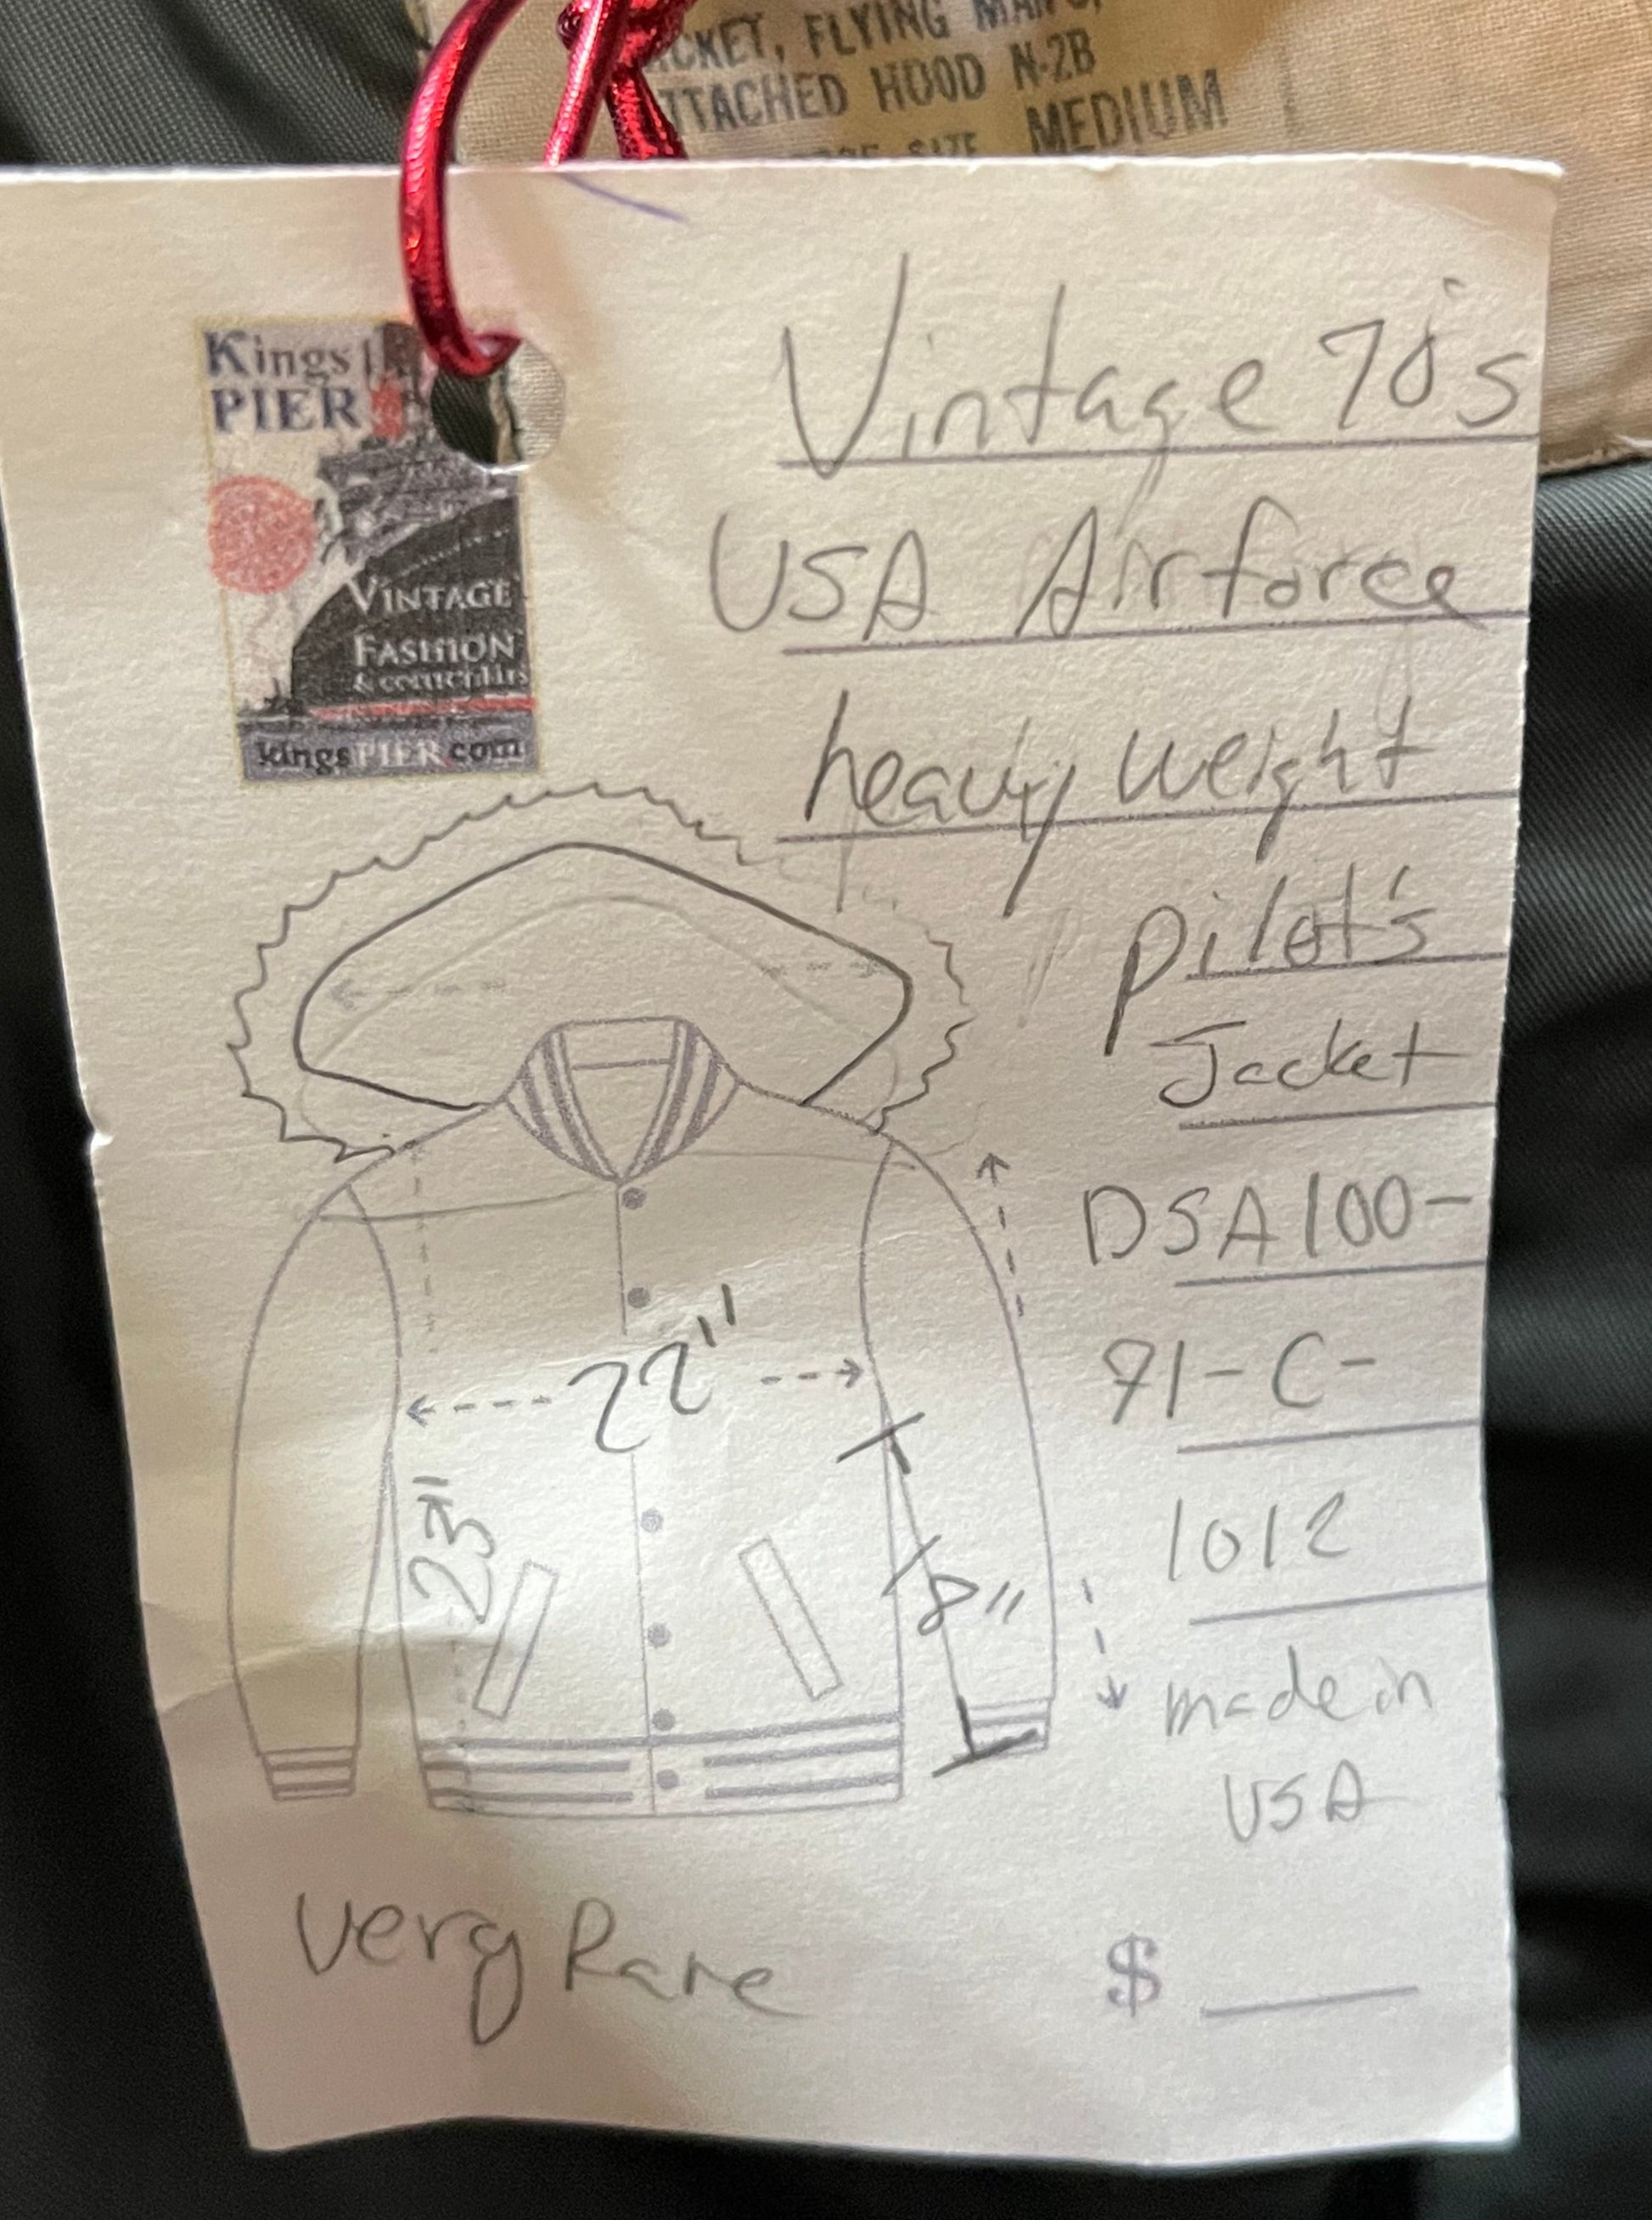 FLYING MAN'S,
ATTACHED HOOD N-2B
SIZE MEDIUM
Kings
PIER
VINTAGE
FASHION
& COLLECTIBLES
kingsPIER.com
Vintage 70's
USA Airforce
heavy weight
pilot's
Jacket
DSA100-
71-C-
1012
made in
USA
22"
23"
18"
Very Rare
$